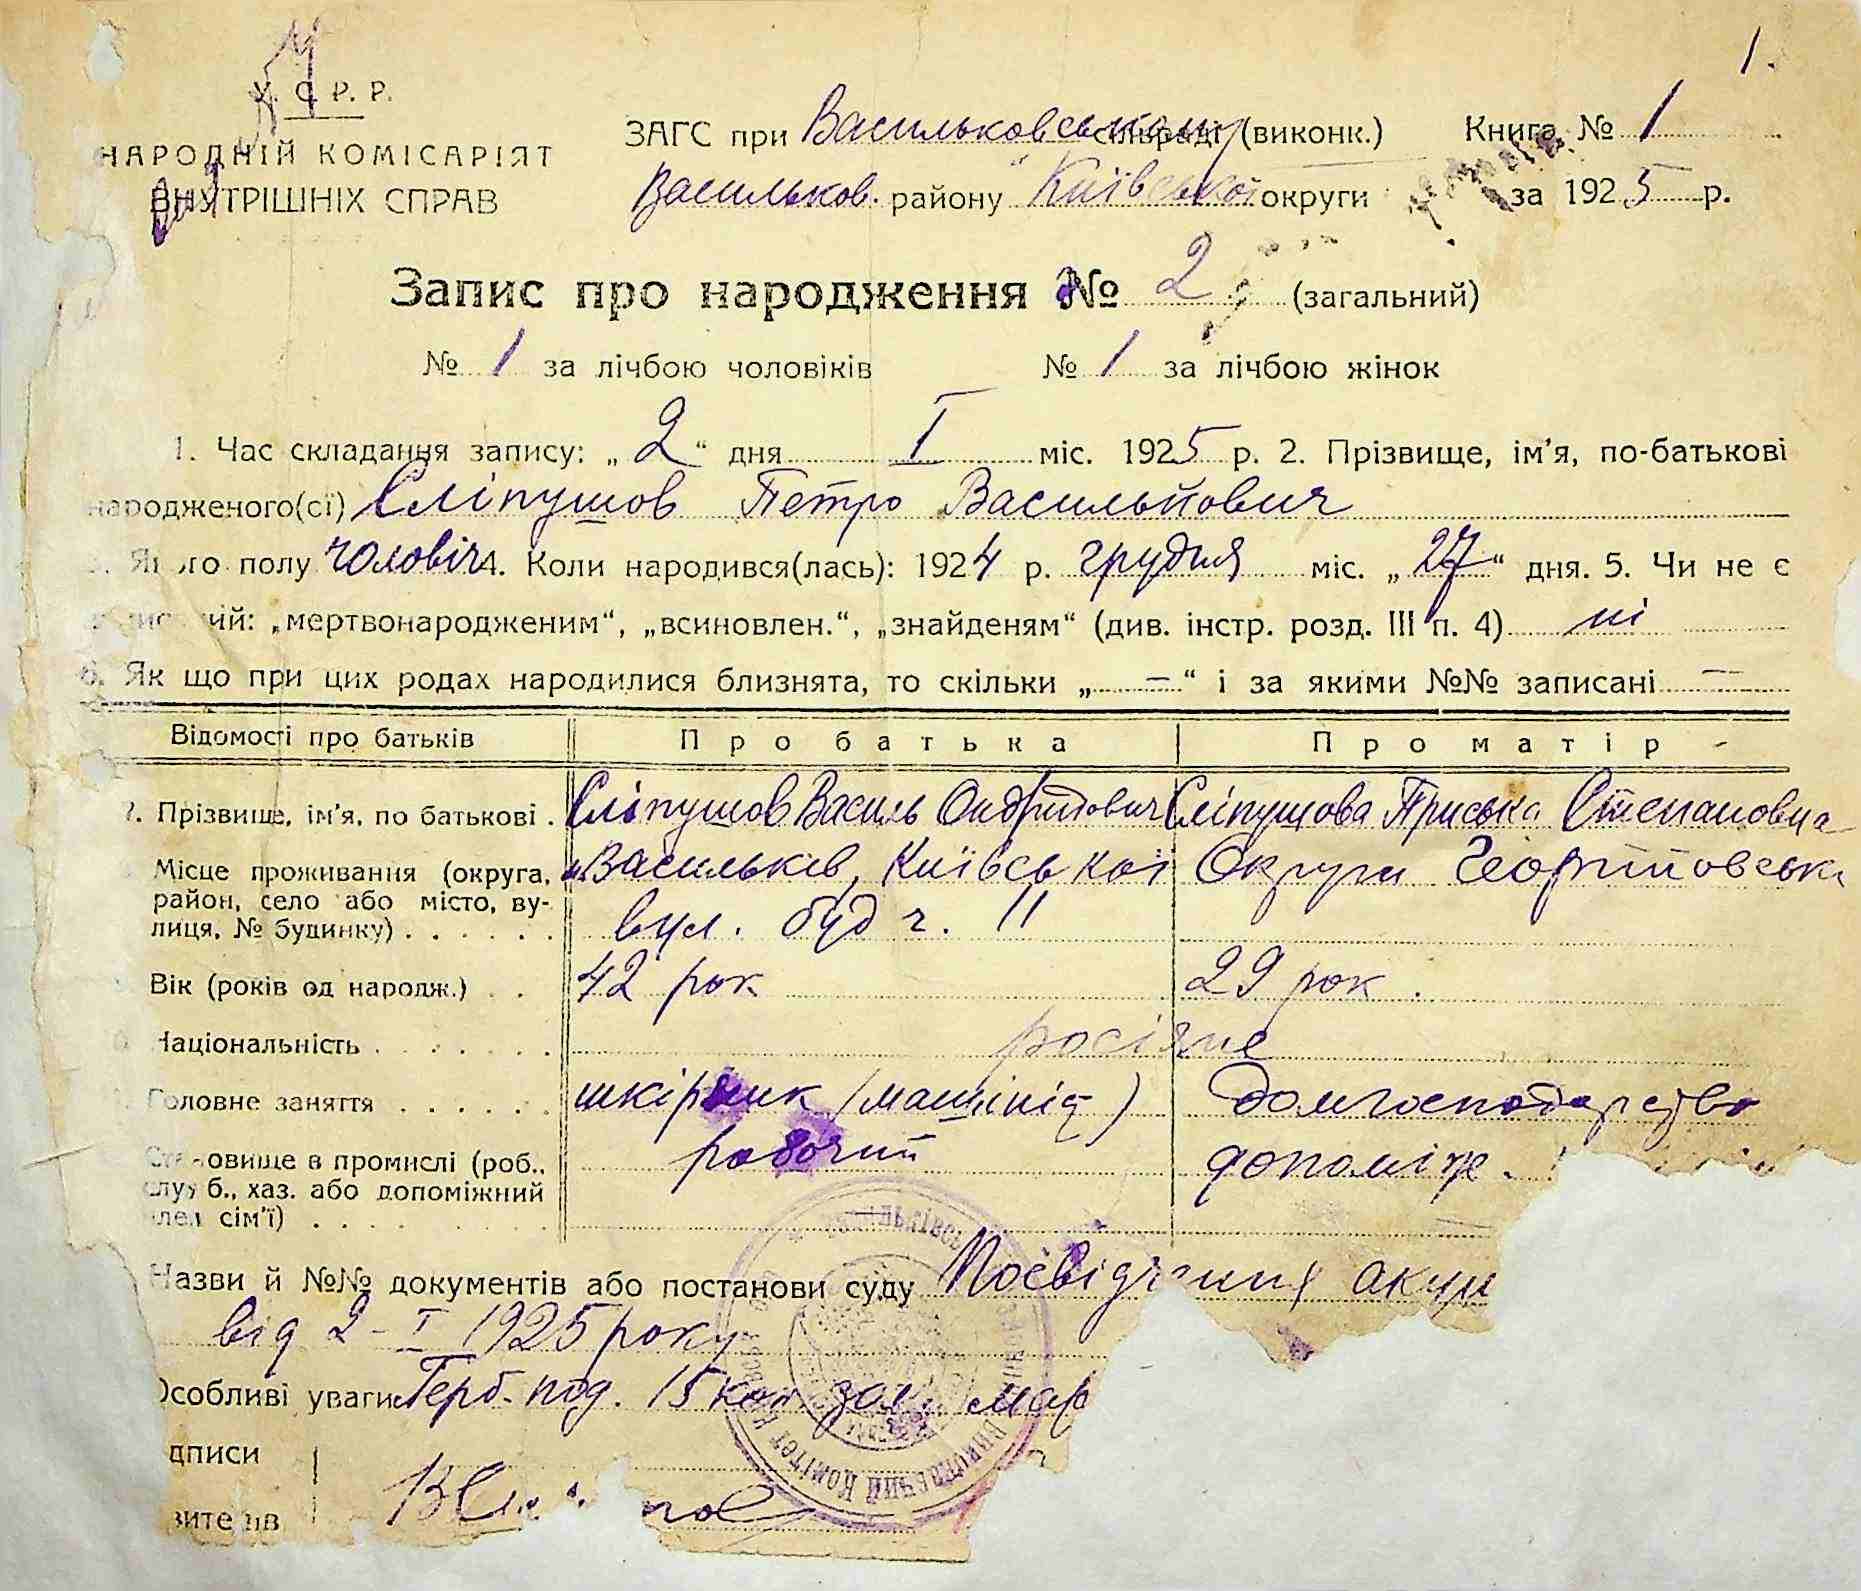 1.
У. С. Р. Р.
НАРОДНІЙ КОМІСАРІЯТ
ВНУТРІШНІХ СПРАВ
ЗАГС при Васильковському сільраді (виконк.) Книга № 1
Васильков. району Київської округи за 1925 р.
Запис про народження № 2 (загальний)
№ 1 за лічбою чоловіків № 1 за лічбою жінок
1. Час складання запису: „2“ дня I міс. 1925 р. 2. Прізвище, ім'я, по-батькові
народженого(сї) Сліпушов Петро Васильйович
полу чоловіч 4. Коли народився(лась): 1924 р. грудня міс. „27“ дня. 5. Чи не є
„мертвонародженим“, „всиновлен.“, „знайденям“ (див. інстр. розд. III п. 4) ні
6. Як що при цих родах народилися близнята, то скільки „ — “ і за якими №№ записані —
Відомості про батьків Про батька Про матір
7. Прізвище, ім'я, по батькові . Сліпушов Василь Сліпушова Приська Степановна
Місце проживання (округа, м Васильків, Київської Округи
район, село або місто, ву-
лиця, № будинку) . . . . . . вул. буд ч. 11
Вік (років од народж.) . . 42 рок 29 рок.
Національність . . . . . . . росіяне
Головне заняття . . . . . . шкірник (машініст) домгосподарство
Становище в промислі (роб., робочий допоміже.
служб., хаз. або допоміжний
член сім'ї) . . . . . . . . .
Назви й №№ документів або постанови суду Посвідчення акуш
від 2 – I 1925 року
Особливі уваги Герб. под. 15 коп зол. мар
дписи